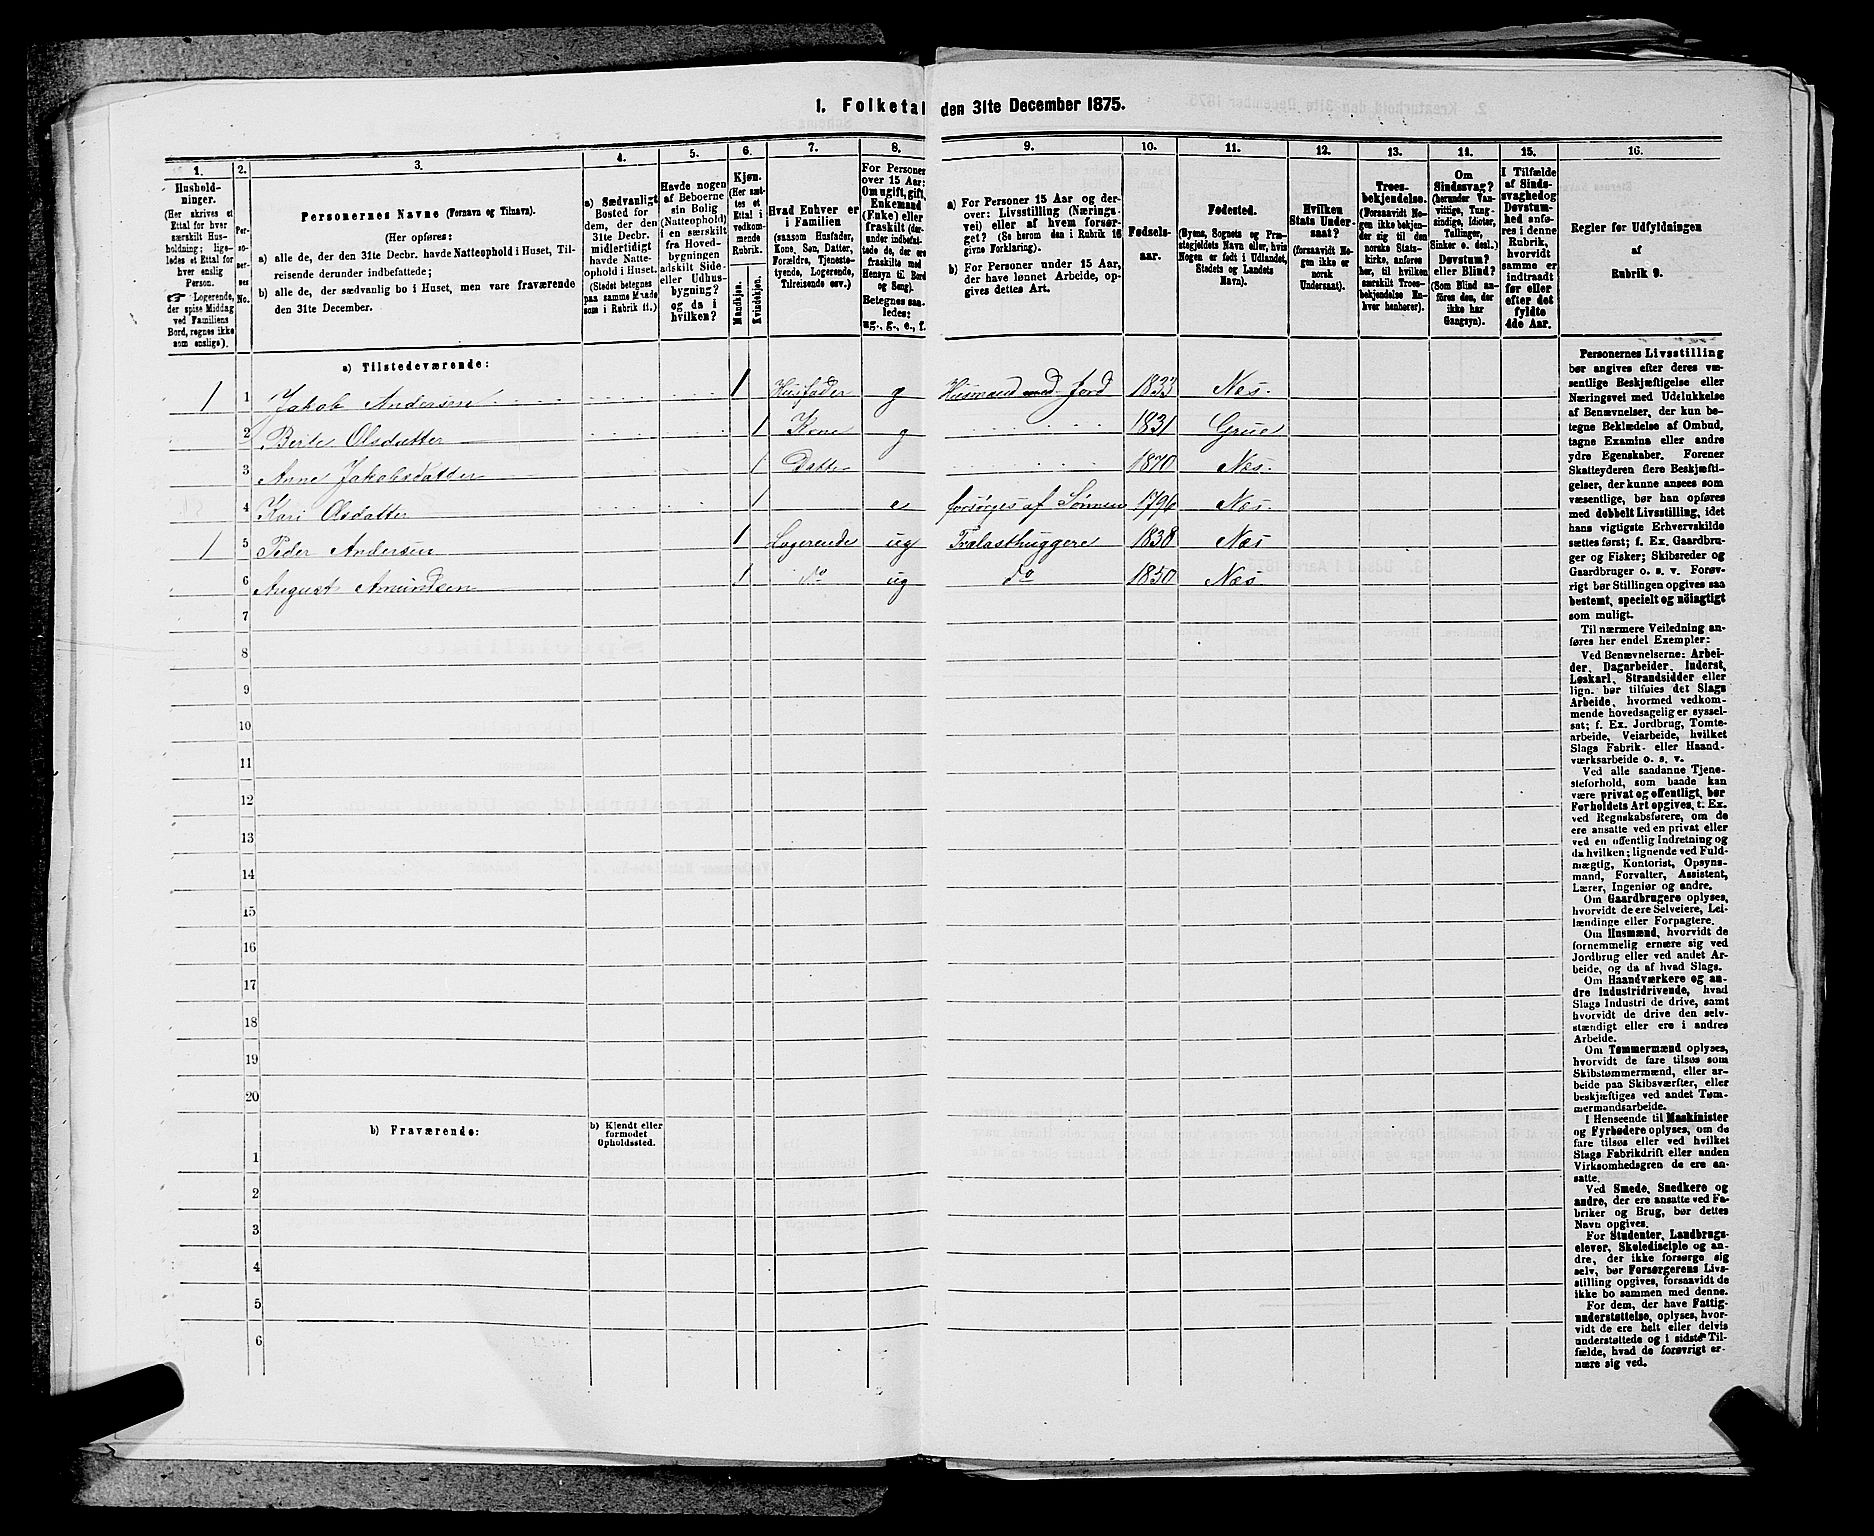 1. Folketal den 31te December 1875.
1.
Hushold-
ninger.
(Her skrives et
Ettal for hver
særskilt Hus-
holdning; lige-
ledes et Ettal for
hver enslig
Person.
☞ Logerende,
der spise Middag
ved Familiens
Bord, regnes ikke
som enslige).
2.
Per-
so-
ner-
nes
No.
3.
Personernes Navne (Fornavn og Tilnavn).
(Her opføres:
a) alle de, der den 31te Decbr. havde Natteophold i Huset, Til-
reisende derunder indbefattede;
b) alle de, der sædvanlig bo i Huset, men vare fraværende
den 31te December.
4.
a) Sædvanligt
Bosted for
dem, der den
31te Decbr.
midlertidigt
havde Natte-
ophold i Huset.
(Stedet betegnes
paa samme Maade
som i Rubrik 11.)
5.
Havde nogen
af Beboerne
sin Bolig
(Natteophold)
i en særskilt
fra Hoved-
bygningen
adskilt Side-
eller Udhus-
bygning?
og da i
hvilken?
6.
Kjøn.
(Her sæt-
tes et
Ettal i
vedkom-
mende
Rubrik.
Mandkjøn.
Kvindekjøn.
7.
Hvad Enhver er
i Familien
(saasom Husfader,
Kone, Søn, Datter,
Forældre, Tjeneste-
tyende, Logerende,
Tilreisende osv.)
8.
For Personer
over 15 Aar:
Om ugift, gift,
Enkemand
(Enke) eller
fraskilt (der-
under indbefat-
tede de, der ere
fraskilte med
Hensyn til Bord
og Seng).
Betegnes saa-
ledes:
ug., g., e., f.
9.
a) For Personer 15 Aar og der-
over: Livsstilling (Nærings-
vei) eller af hvem forsør-
get? (Se herom den i Rubrik 16
givne Forklaring).
b) For Personer under 15 Aar,
der have lønnet Arbeide, op-
gives dettes Art.
10.
Fødsels-
aar.
11.
Fødested.
(Byens, Sognets og Præ-
stegjeldets Navn, eller, hvis
Nogen er født i Udlandet,
Stedets og Landets
Navn).
12.
Hvilken
Stats Under-
saat?
(forsaavidt No-
gen ikke er
norsk
Undersaat).
13.
Troes-
bekjendelse.
(Forsaavidt No-
gen ikke bekjen-
der sig til den
norske Stats-
kirke, anføres
her, til hvilken
særskilt Troes-
bekjendelse En-
hver henhører).
14.
Om
Sindssvag?
(herunder Van-
vittige, Tung-
sindige, Idioter,
Tullinger,
Sinker o. desl.)
Døvstum?
eller Blind?
(Som Blind an-
føres den, der
ikke har
Gangsyn).
15.
I Tilfælde
af Sinds-
svaghed og
Døvstum-
hed anfø-
res i denne
Rubrik,
hvorvidt
samme er
indtraadt
før eller
efter det
fyldte
4de Aar.
16.
Regler for Udfyldningen
af
Rubrik 9.
a) Tilstedeværende:
1 1 Jakob Andersen 1 Husfader g Husmand med Jord 1833 Næs.
2 Berte Olsdatter 1 Kone g 1831 Grue
3 Anne Jakobsdatter 1 Datter 1870 Næs.
4 Kari Olsdatter 1 e forsørges af Sønnen 1796 Næs
1 5 Peder Andersen 1 Logerende ug Trælasthuggere 1838 Næs
6 August Amundsen 1 do ug do 1850 Næs
7
8
9
10
11
12
13
14
15
16
17
18
19
20
b) Fraværende:
b) Kjendt eller
formodet
Opholdssted.
1
2
3
4
5
6
Personernes Livsstilling
bør angives efter deres væ-
sentlige Beskjæftigelse eller
Næringsvei med Udelukkelse
af Benævnelser, der kun be-
tegne Beklædelse af Ombud,
tagne Examina eller andre
ydre Egenskaber. Forener
Skatteyderen flere Beskjæfti-
gelser, der kunne ansees som
væsentlige, bør han opføres
med dobbelt Livsstilling, idet
hans vigtigste Erhvervskilde
sættes først; f. Ex. Gaardbru-
ger og Fisker; Skibsreder og
Gaardbruger o. s. v. Forøv-
rigt bør Stillingen opgives saa
bestemt, specielt og nøiagtigt
som muligt.
Til nærmere Veiledning an-
føres her endel Exempler:
Ved Benævnelserne: Arbei-
der, Dagarbeider, Inderst,
Løskarl, Strandsidder eller
lign. bør tilføies det Slags
Arbeide, hvormed vedkom-
mende hovedsagelig er syssel-
sat; f. Ex. Jordbrug, Tomte-
arbeide, Veiarbeide, hvilket
Slags Fabrik- eller Haand-
værksarbeide o. s. v.
Ved alle saadanne Tjene-
steforhold, som baade kan
være privat og offentligt, bør
Forholdets Art opgives, t. Ex.
ved Regnskabsførere, om de
ere ansatte ved en privat eller
ved en offentlig Indretning og
da hvilken; lignende ved Fuld-
mægtig, Kontorist, Opsyns-
mand, Forvalter, Assistent,
Lærer, Ingeniør og andre.
Om Gaardbrugere oplyses,
hvorvidt de ere Selveiere, Lei-
lændinge eller Forpagtere.
Om Husmænd, hvorvidt de
fornemmelig ernære sig ved
Jordbrug eller ved andet Ar-
beide, og da af hvad Slags.
Om Haandværkere og an-
dre Industridrivende, hvad
Slags Industri de drive, samt
hvorvidt de drive den selv-
stændigt eller ere i andres
Arbeide.
Om Tømmermænd oplyses,
hvorvidt de fare tilsøs som
Skibstømmermænd, eller ar-
beide paa Skibsværfter, eller
beskjæftiges ved andet Tøm-
mermandsarbeide.
I Henseende til Maskinister
og Fyrbødere oplyses, om de
fare tilsøs eller ved hvilket
Slags Fabrikdrift eller anden
Virksomhedsgren de ere an-
satte.
Ved Smede, Snedkere og
andre, der ere ansatte ved Fa-
briker og Brug, bør dettes
Navn opgives.
For Studenter, Landbrugs-
elever, Skoledisciple og an-
dre, der ikke forsørge sig
selv, bør Forsørgerens Livs-
stilling opgives, forsaavidt de
ikke bo sammen med denne.
For dem, der have Fattig-
understøttelse, oplyses, hvor-
vidt de ere helt eller delvis
understøttede og i sidste Til-
fælde, hvad de forøvrigt er-
nære sig ved.